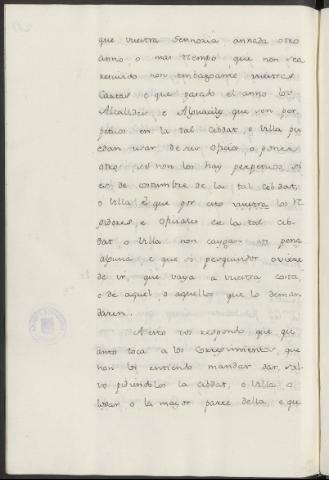 que vuestra Sennoria annada otro
anno o mas tiempo que non sea
rescivido non embargante vuestras
Cartas e que pasado el anno los
Alcalldes e Alguaciles que son per
petuos en la tal cibdat, e Villa pu
edan usar de sus oficios o poner
otro si non los hay perpetuos, si
es de costumbre de la tal cibdat,
o Villa e que por esto vuestra los Re
gidores e oficiales de la tal Cib
dat o Villa non cayan en pena
alguna e que si pesquisidor oviere
de ir, que vaya a vuestra costa,
o de aquel o aquellos que lo deman
daren.
A esto vos respondo que qu
anto toca a los Corregimientos que
non los entiendo mandar dar, sal
vo pidiendolos la cibdat, o Villa o
logar, o la mayor parte della, e que